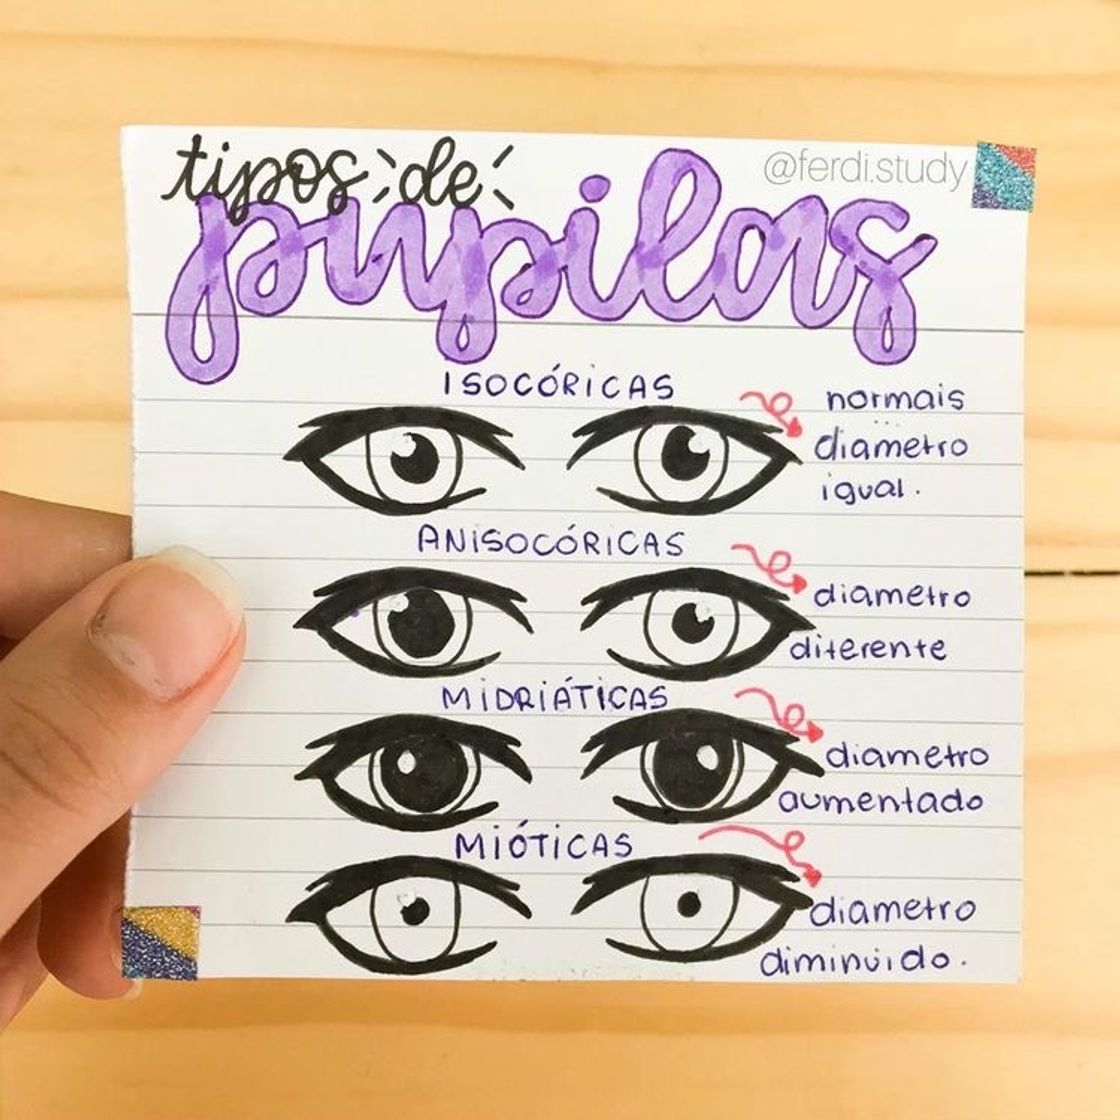 tipos de
@ferdi.study
pupilas
ISOCÓRICAS
normais
diametro
igual.
ANISOCÓRICAS
diametro
diferente
MIDRIÁTICAS
diametro
aumentado
MIÓTICAS
diametro
diminuido.